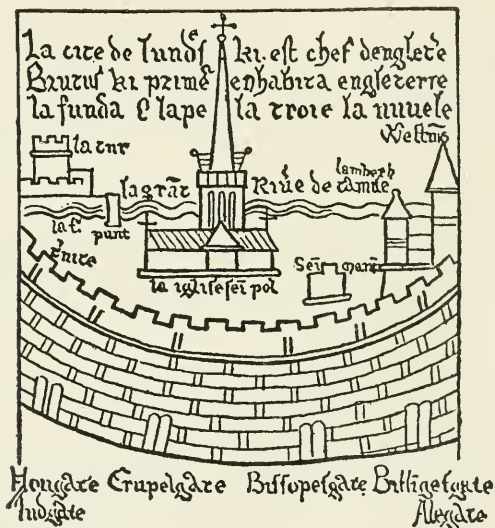 La cite de lundeſ ki. est chef denglete
Brutus ki primes enhabita engleterre
la funda & lape la troie la nuuele
Westm̄
la tur
lambeth
la grāt Riue de tamise
punt
la iglise sei pol
Hongate Crupelgate Bissopesgate Billigesgate
ludgate Alegate